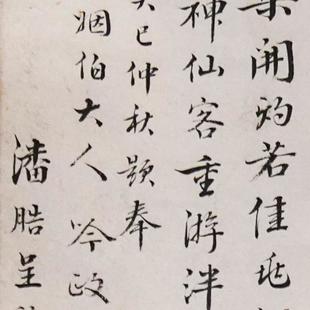 開韵若佳兆
神仙客重游泮
巳仲秋題奉
姻伯大人吟政
潘晧呈